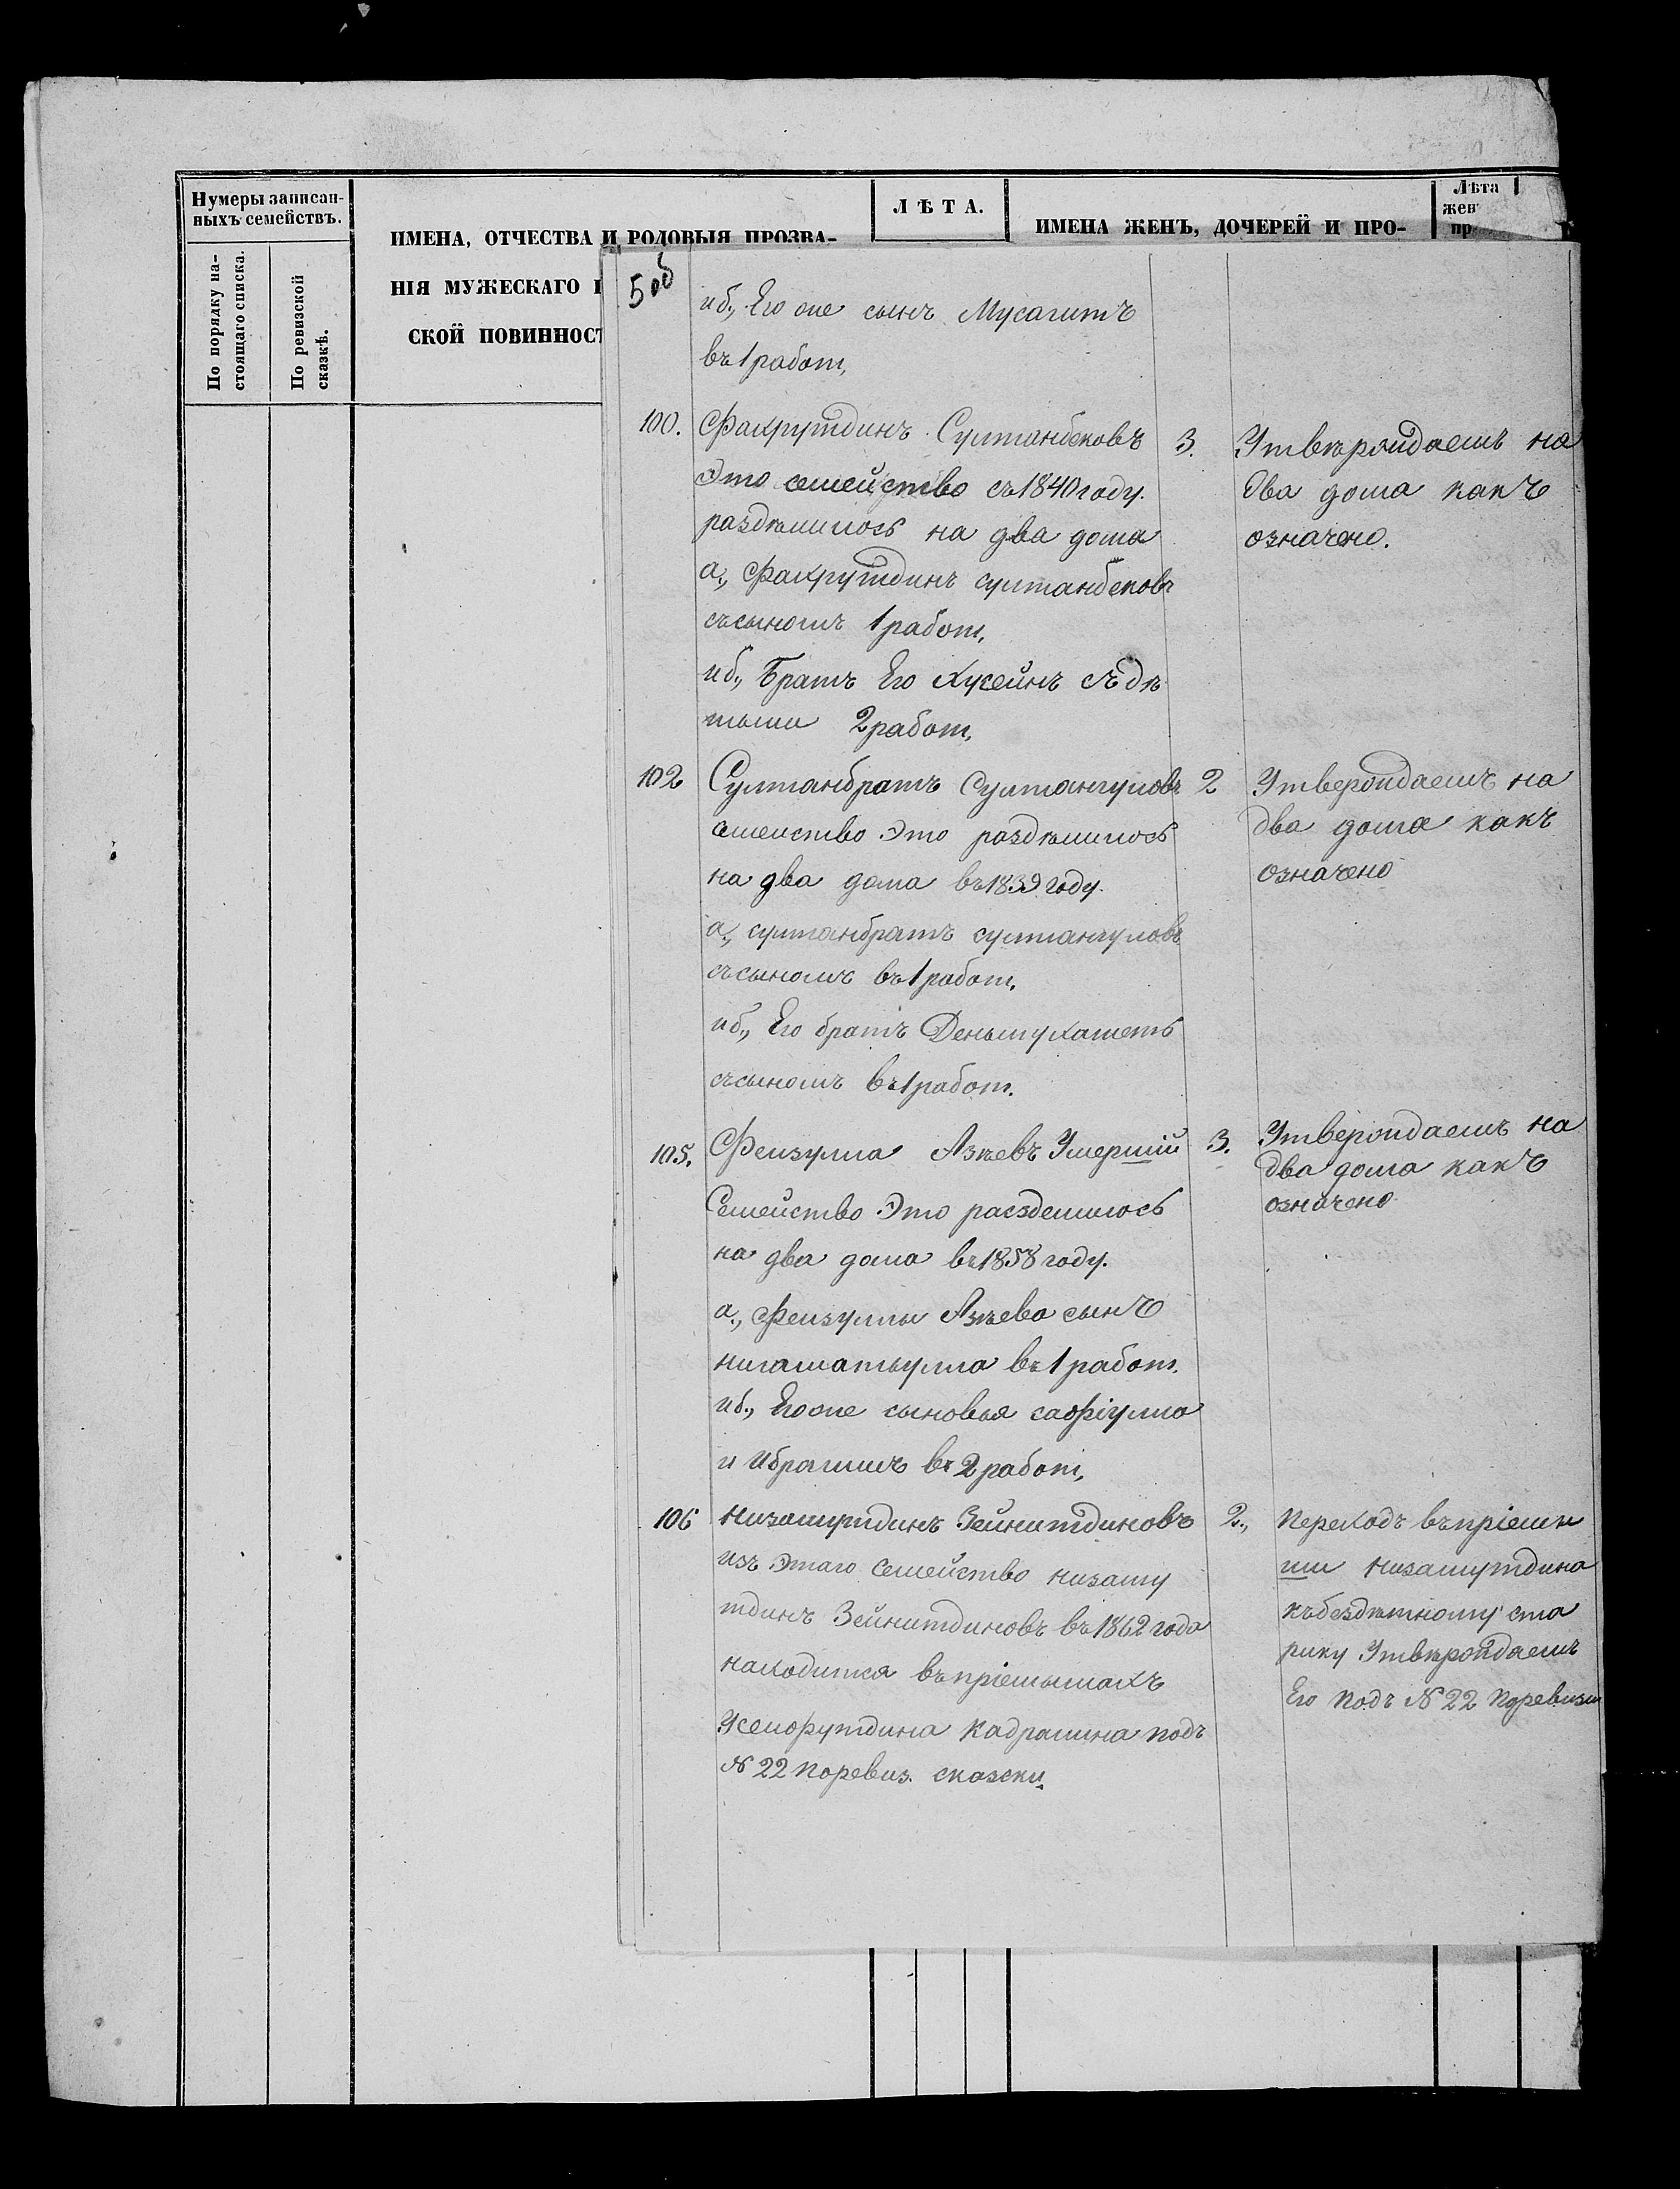 Нумеры записан-
ныхъ семействъ.
По порядку на-
стоящаго списка.
По ревизской
сказкѣ.
ИМЕНА, ОТЧЕСТВА И РОДОВЫЯ ПРОЗВА-
НІЯ МУЖЕСКАГО
СКОЙ ПОВИННОСТ
ЛѢТА.
ИМЕНА ЖЕНЪ, ДОЧЕРЕЙ И ПРО-
Лѣта
жен
пр
5 об
и б., Его же сынъ Мусагитъ
въ 1 работ,
100. Фахрутдинъ Султанбековъ 3.
Это семейство съ 1840 году.
раздѣлилось на два дома
а., Фахрутдинъ султанбековъ
съ сыномъ 1 работ,
и б., Братъ Его Хусеинъ съ дѣ
тьми 2 работ,
Утвѣрждаемъ на
два дома какъ
означено.
102 Султанбратъ Султангуловъ 2
семейство Это раздѣлилось
на два дома въ 1839 году.
а., султанбратъ султангуловъ
съ сыномъ въ 1 работ,
и б., Его братъ Деньмухаметь
съ сыномъ въ 1 работ.
Утверждаемъ на
два дома какъ
означено
105. Феизулла Азѣевъ Умершій 3.
Семейство Это расзделилось
на два дома въ 1858 году.
а., Феизуллы Азѣева сынъ
нигаматьулла въ 1 работ.
и б., Его же сыновья сафіулла
и Ибрагимъ въ 2 работ,
Утверждаемъ на
два дома какъ
означено
106 низамутдинъ Зейнитдиновъ 2.,
изъ Этаго Семейство низаму
тдинъ Зейнитдиновъ въ 1862 года
находится въ пріемышахъ
Кадрашина подъ
№ 22 поревиз. сказски
переходъ въ пріемы
ши низамутдина
къ бездѣтному ста
рику Утвѣрждаемъ
Его подъ № 22 поревизи